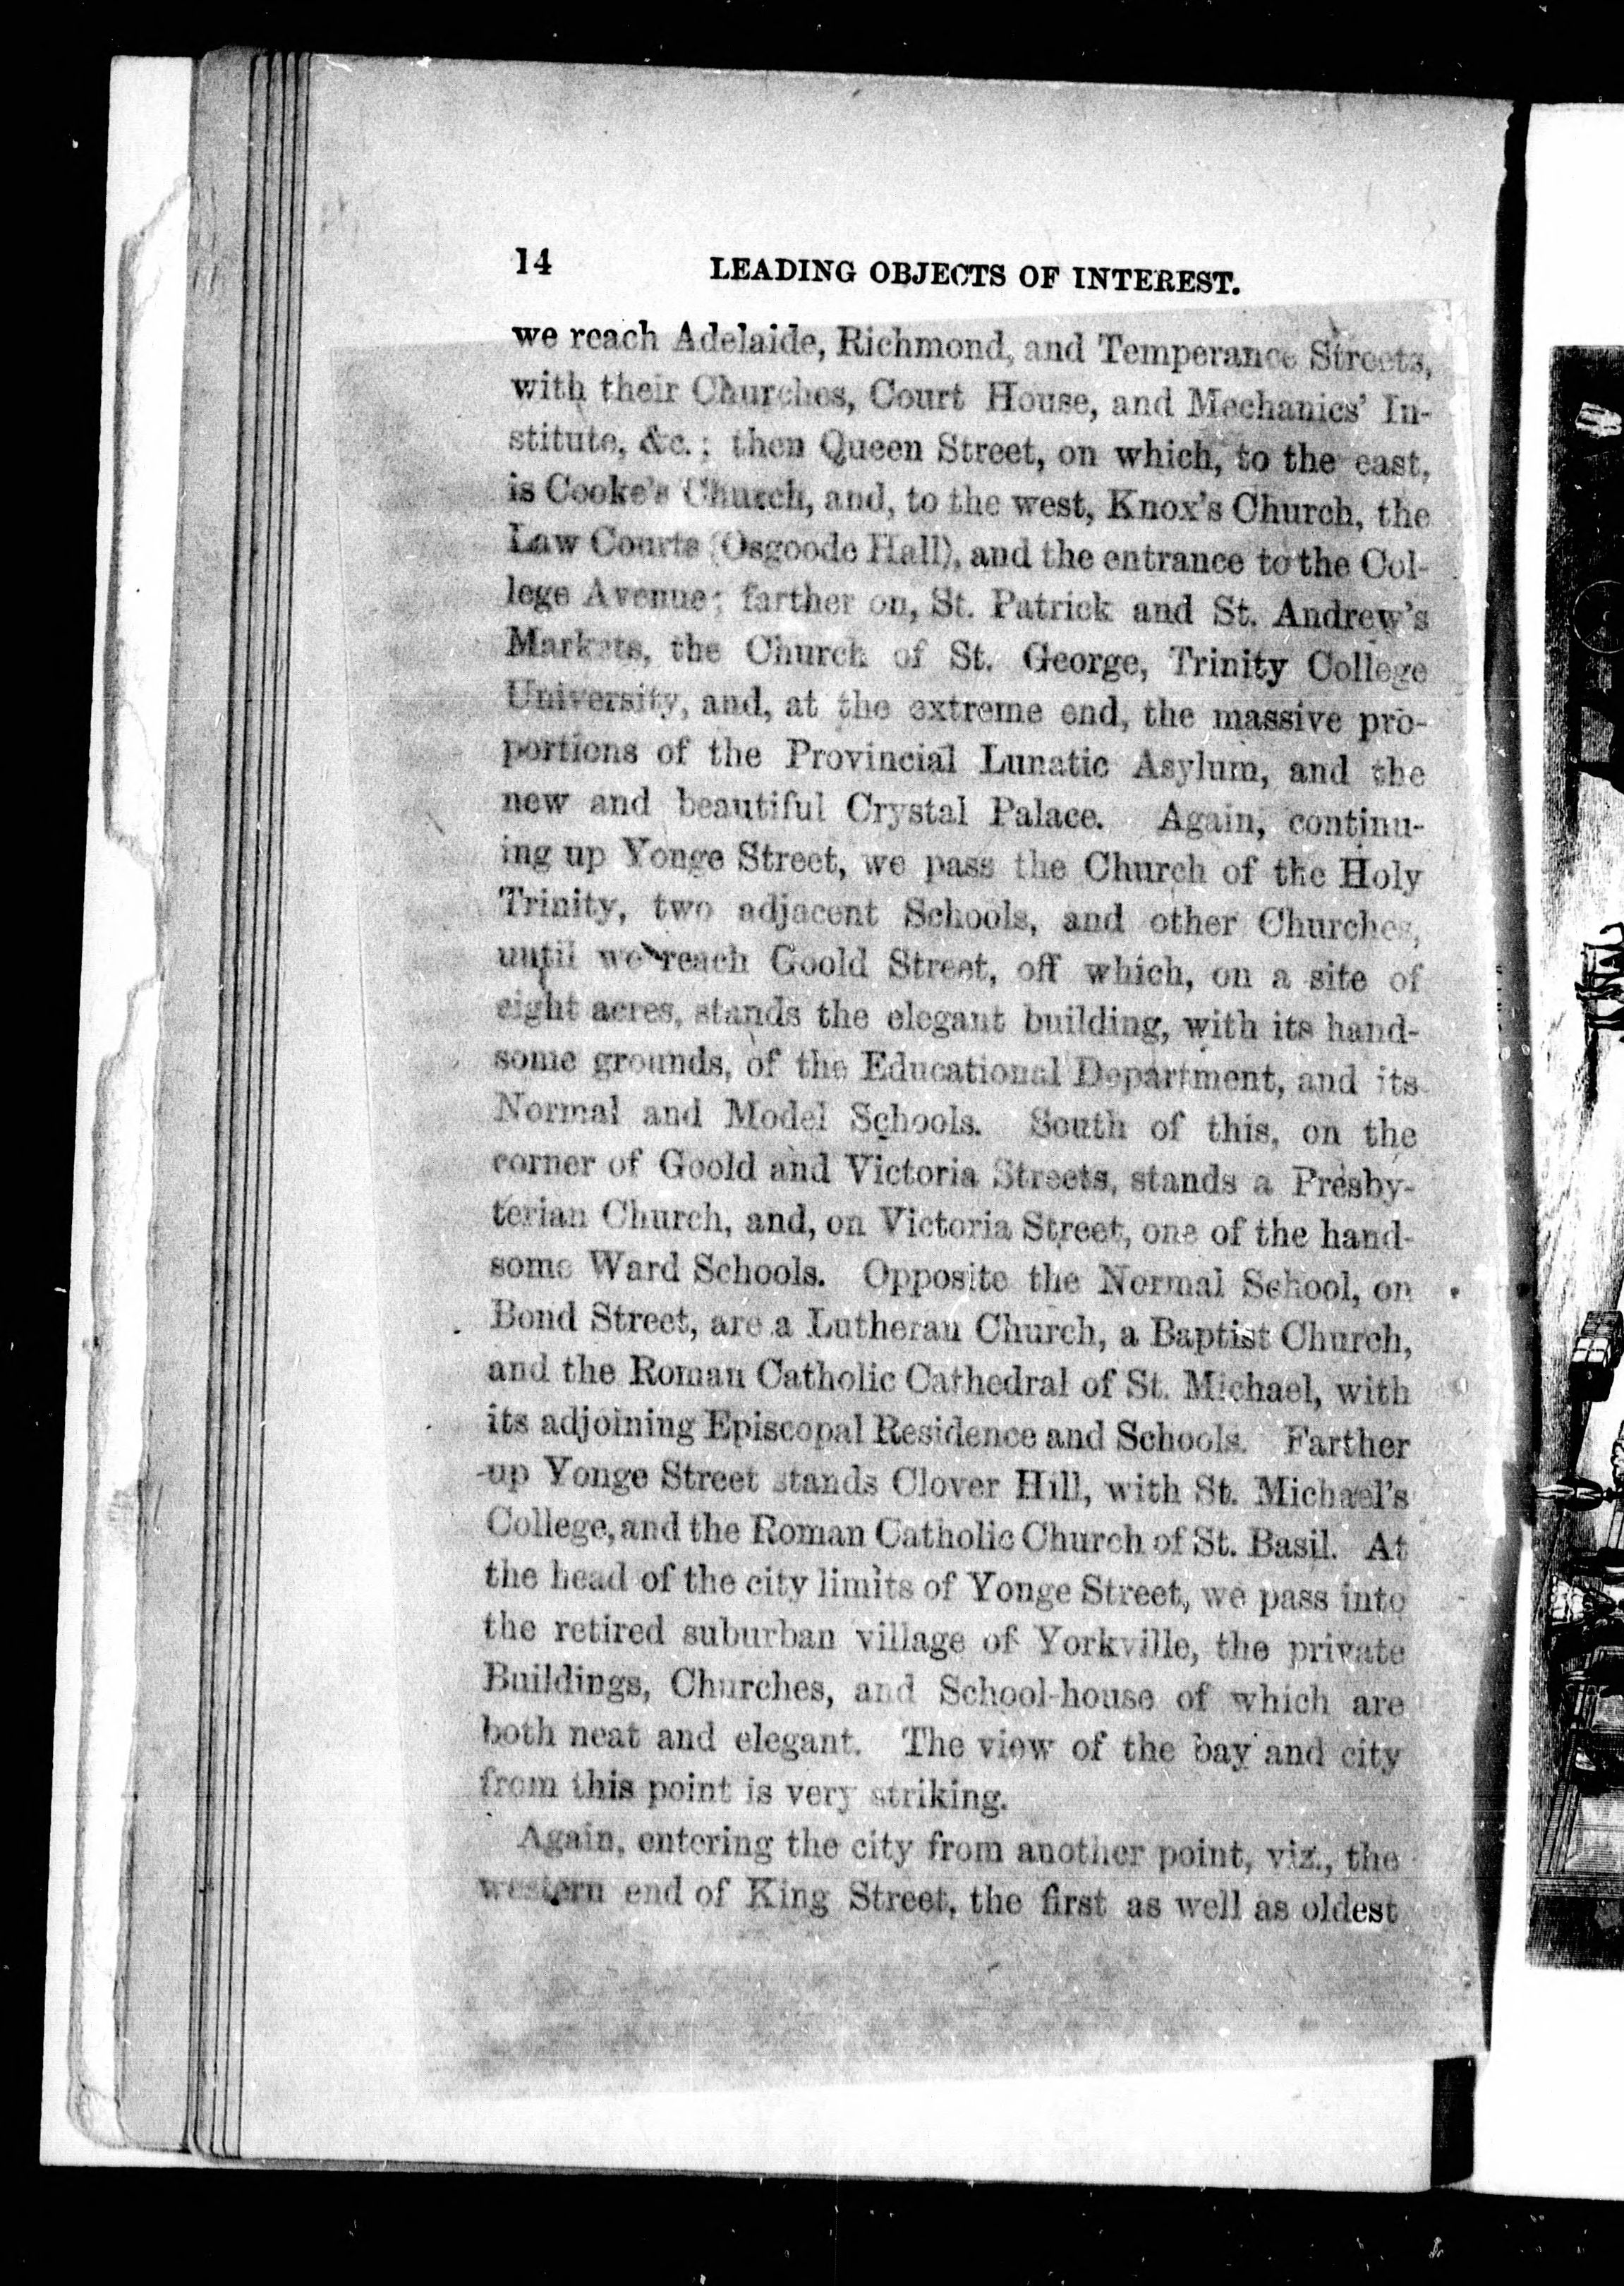 14 LEADING OBJECTS OF INTEREST.
we reach Adelaide, Richmond, and Temperance Streets,
with their Churches, Court House, and Mechanics' In-
stitute, &c.; then Queen Street, on which, to the east,
is Cooke's Church, and, to the west, Knox's Church, the
Law Courts (Osgoode Hall), and the entrance to the Col-
lege Avenue; farther on, St. Patrick and St. Andrew's
Markets, the Church of St. George, Trinity College
University, and, at the extreme end, the massive pro-
portions of the Provincial Lunatic Asylum, and the
new and beautiful Crystal Palace. Again, continu-
ing up Yonge Street, we pass the Church of the Holy
Trinity, two adjacent Schools, and other Churches,
until we reach Goold Street, off which, on a site of
eight acres, stands the elegant building, with its hand-
some grounds, of the Educational Department, and its
Normal and Model Schools. South of this, on the
corner of Goold and Victoria Streets, stands a Presby-
terian Church, and, on Victoria Street, one of the hand-
some Ward Schools. Opposite the Normal School, on
Bond Street, are a Lutheran Church, a Baptist Church,
and the Roman Catholic Cathedral of St. Michael, with
its adjoining Episcopal Residence and Schools. Farther
up Yonge Street stands Clover Hill, with St. Michael's
College, and the Roman Catholic Church of St. Basil. At
the head of the city limits of Yonge Street, we pass into
the retired suburban village of Yorkville, the private
Buildings, Churches, and School-house of which are
both neat and elegant. The view of the bay and city
from this point is very striking.
Again, entering the city from another point, viz., the
western end of King Street, the first as well as oldest